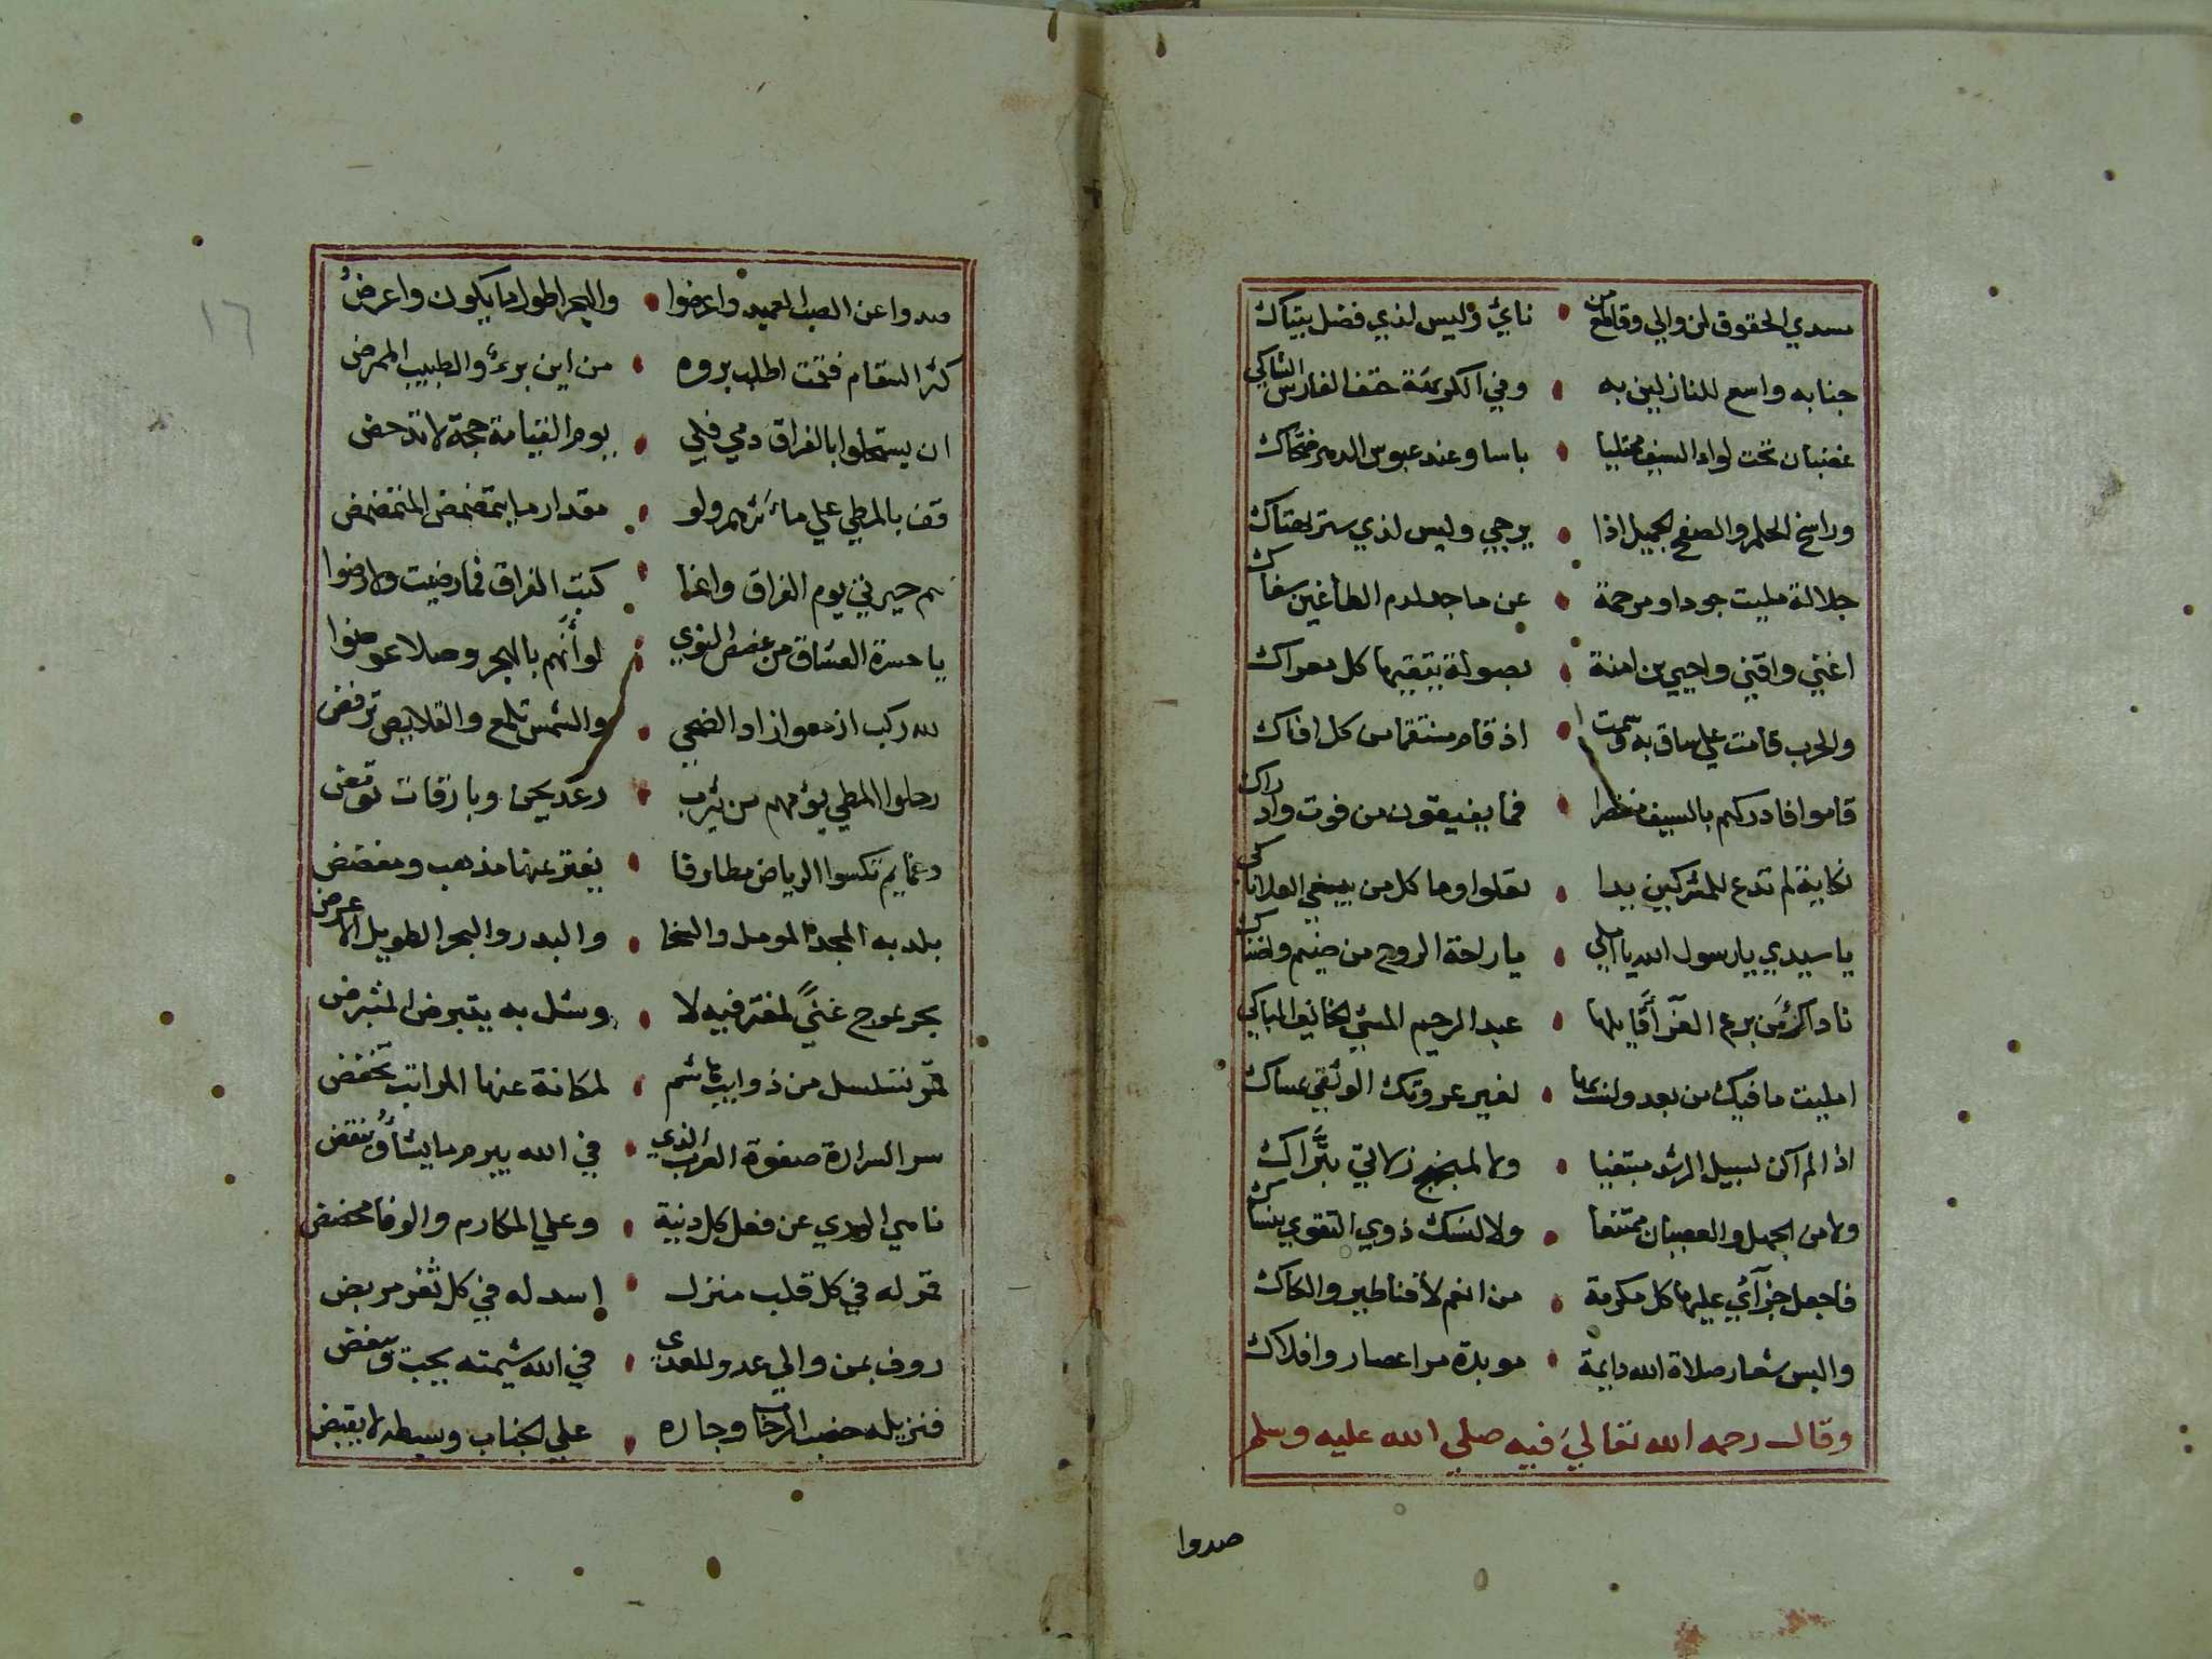 مسدي الحقوق لمن والي وقامع من • ناي وليس لذي فضل ببتاك
جنابه واسع للنازلين به • وفي الكريهة حتف الفارس الشاكي
غضبان تحت لواء السيف مجتليا • باسا وعند عبوس الدهر ضحاك
وراسخ الحلم والصفح الجميل اذا • يرجي وليس لذي ستر بهتاك
جلالة مليت جودا ومرحمة • عن ماجد لدم الطاغين سفاك
والحرب قامت علي ساق به وسمت • اذ قام منتقما من كل افاك
قاموا فادركهم بالسيف • فما يفيقون من فوت وادراك
نكاية لم تدع للمشركين يدا •
يا سيدي يا رسول الله يا املي • يا راحة الروح من ضيم وضناك
ناداك من برع الغرآ قايلها • عبد الرحيم المسي الخايف الباكي
امليت مافيك من بعد ولست بها • لغير عروتك الوثقي بمساك
اذا لم اكن لسبيل الرشد مبتغيا • ولا لمنهج زلاتي بتراك
ولا من الجهل والعصيان ممتنعا • ولا لنسك ذوي التقوي بنساك
فاجعل جزآئي عليها كل مكرمة • من انعم لا قناطير والكاك
والبس شعار صلاة الله دايمة • موبدة مر اعصار وافلاك
وقال رحمه الله تعالي فيه صلي الله عليه وسلم
صدوا
١٦
صدوا عن الصب العميد واعرضوا • والهجر اطول ما يكون واعرض
كثر السقام فتحت اطلب بروه • من اين برء والطبيب الممرض
ان يستحلوا بالفراق دمي فلي • يوم القيامة حجة لا تدحض
قف بالمطي علي مآثرهم ولو • مقدار ما يتمضمض المتمضمض
هم حيرني يوم الفراق وانما • كتب الفراق فما رضيت ولا رضوا
يا حسرة العشاق من غصص النوي • لو أنهم بالهجر وصلا عوضوا
لله ركب ازمعوا زاد الضحي • والشمس تلمع والقلايص ترفض
رحلوا المطي يؤمهم من يثرب • رعد يحن وبارقات تومض
وغمايم تكسوا الرياض مطارفا • يفتر عنها مذهب ومفضض
بلد به المجد الموصل والسخا • والبدر والبحر الطويل الاعرض
بحر يموج غنيً لمغترفيه لا • وشل به يتبرض المتبرض
قمر تسلسل من ذوايب هاشم • لمكانة عنها المراتب تخفض
سر السرارة صفوة العرب الذي • في الله يبرم ما يشاؤ وينقض
ناهي الهدي عن فعل كل دنية • وعلي المكارم والوفا محضض
قمر له في كل قلب منزل • اسد له في كل ثغر مربض
روف بمن والي عدو للعدي • في الله شيمته يحب ويبغض
فنزيله خصب الرخا وجاره • علي الجناب وبسطه لا يقبض